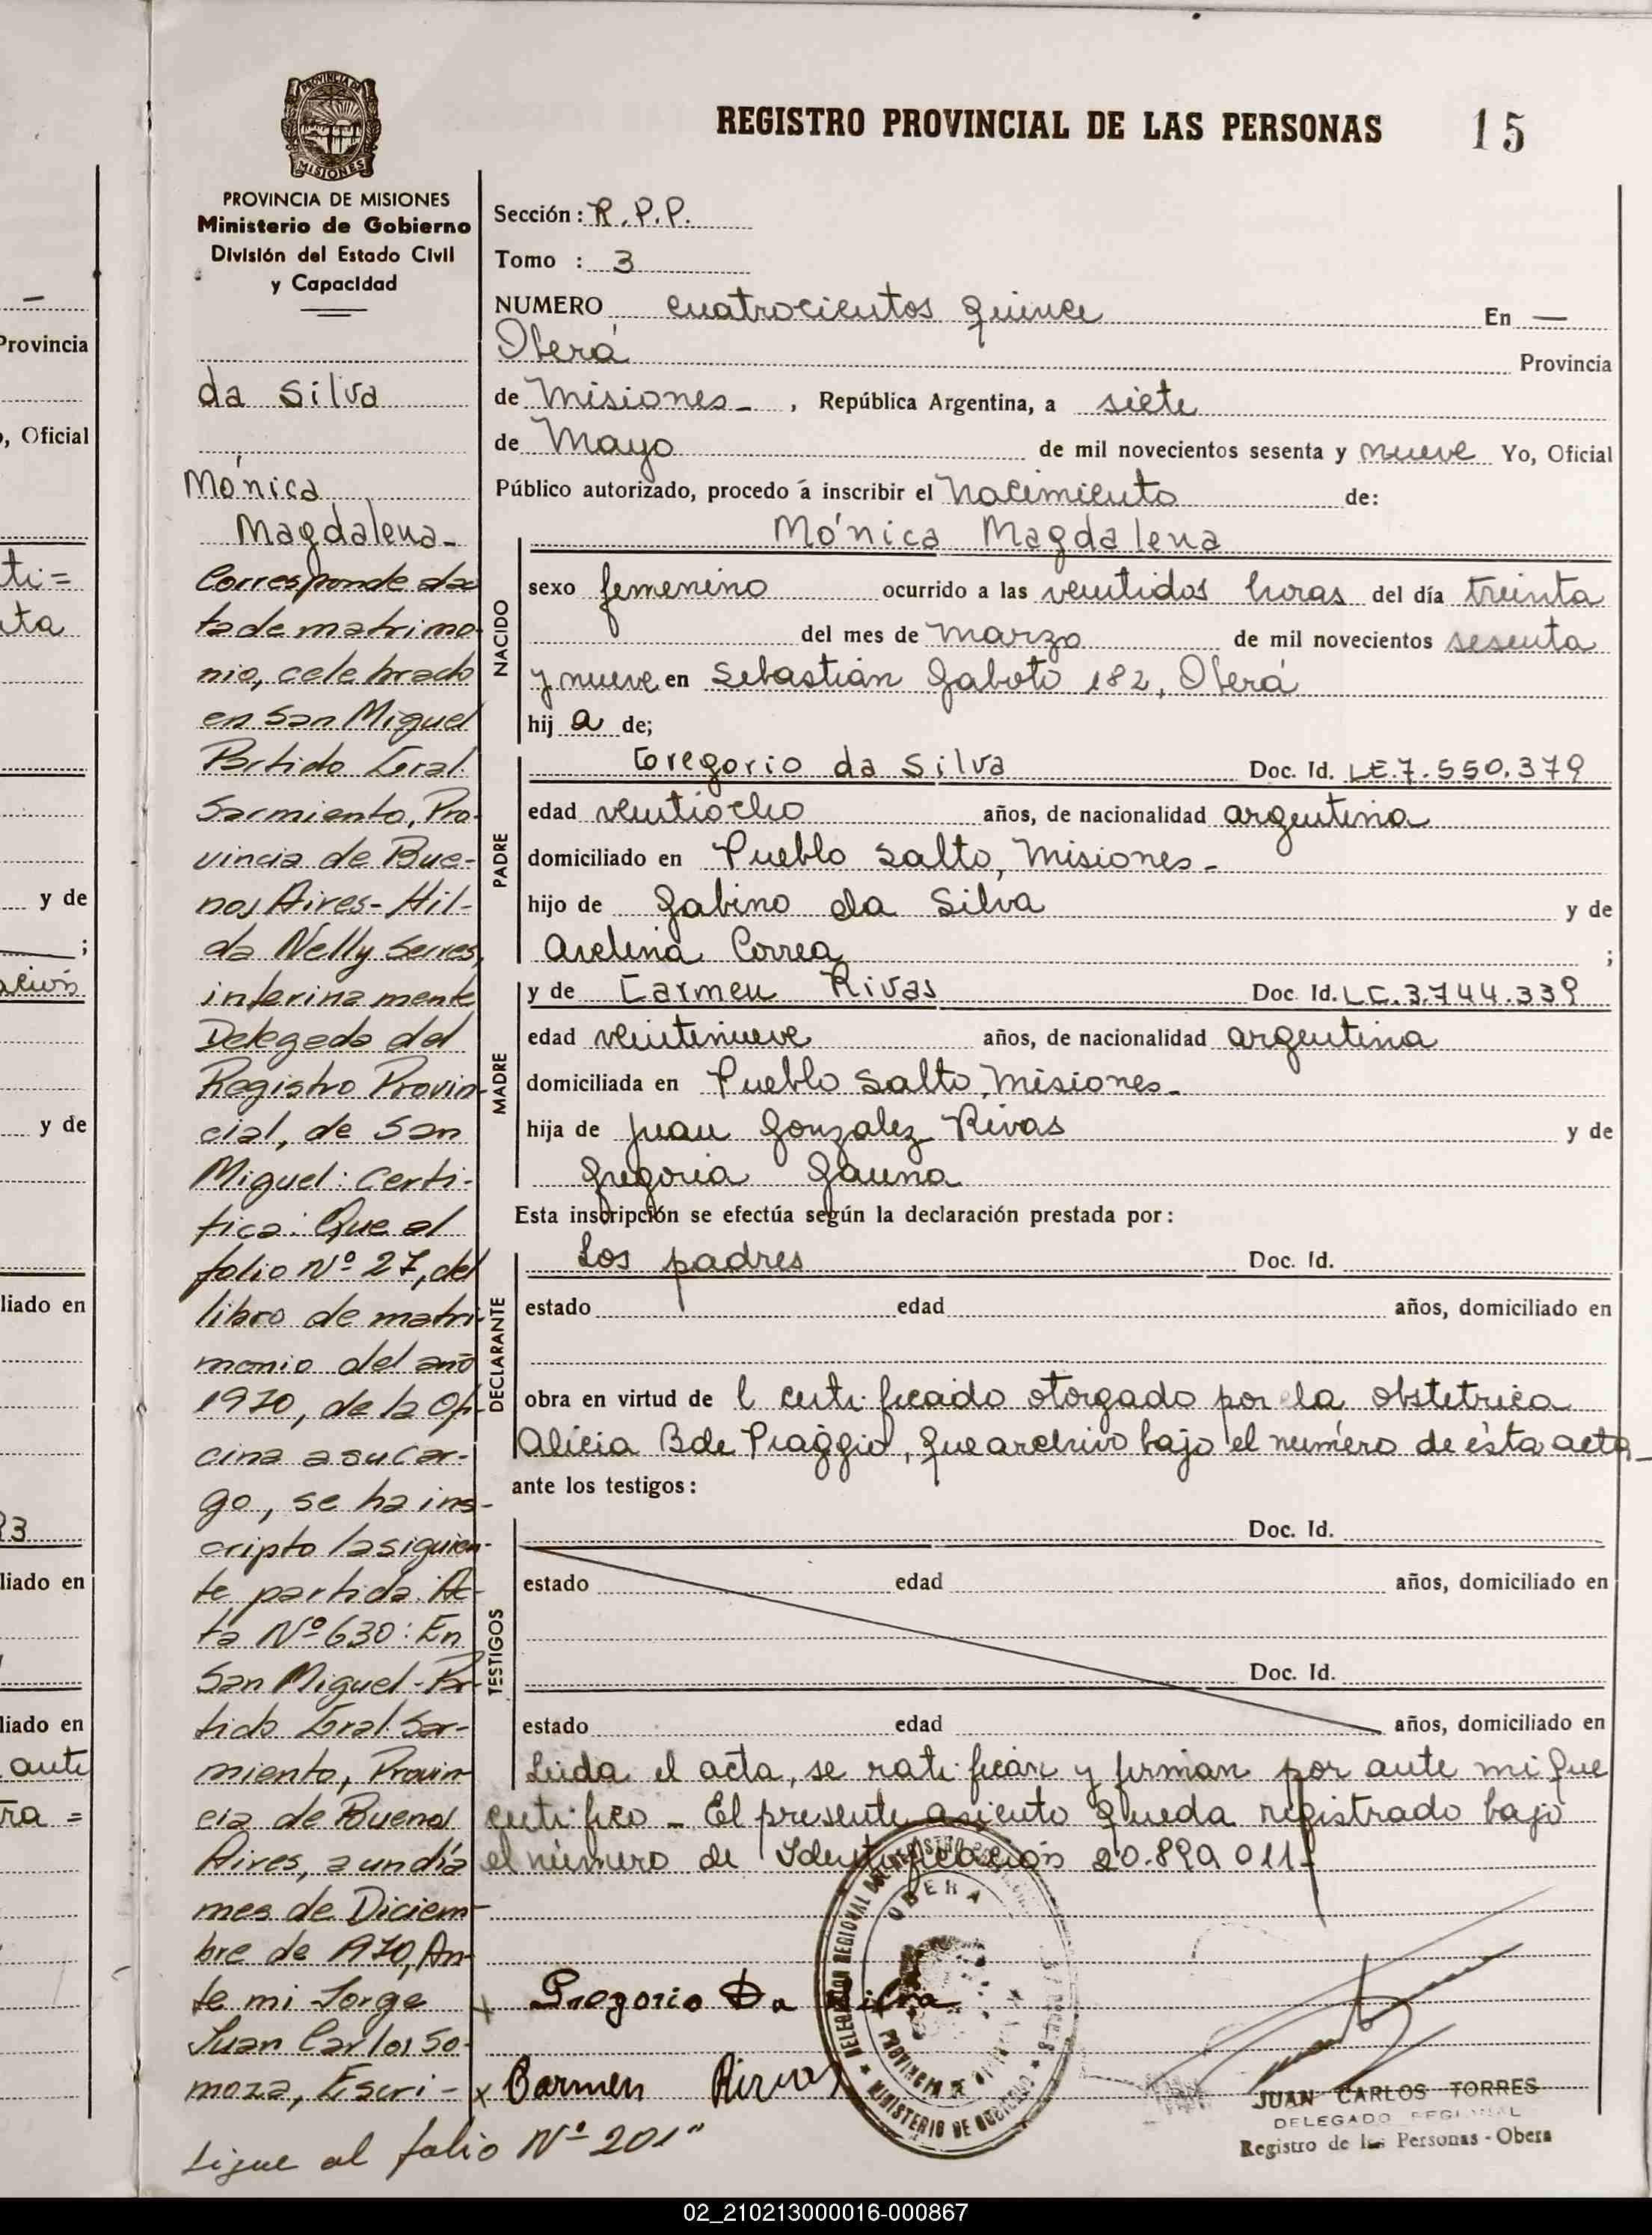 REGISTRO PROVINCIAL DE LAS PERSONAS 15
PROVINCIA DE MISIONES
PROVINCIA DE MISIONES
Ministerio de Gobierno
División del Estado Civil
y Capacidad
da Silva
Mónica
Magdalena-
Corresponde da
ta de matrimo-
nio, celebrado
en San Miguel
Partido Gral.
Sarmiento, Pro-
vincia de Bue-
nos Aires- Hil-
da Nelly Serres,
interinamente
Delegada del
Registro Provin-
cial, de San
Miguel: Certi-
fica: Que al
folio Nº 27, del
libro de matri-
monio del año
1970, de la Ofi-
cina a su car-
go, se ha ins-
cripto la siguien-
te partida: Ac-
ta Nº 630: En
San Miguel - Par-
tido Gral. Sar-
miento, Provin-
cia de Buenos
Aires, a un día
mes de Diciem-
bre de 1970, An-
te mi Jorge
Juan Carlos So-
moza, Escri-
Sigue al folio Nº 201"
Sección: R.P.P.
Tomo : 3
NUMERO cuatrocientos quince En —
Oberá Provincia
de Misiones- , República Argentina, a siete
de Mayo de mil novecientos sesenta y nueve Yo, Oficial
Público autorizado, procedo á inscribir el nacimiento de:
Mónica Magdalena
NACIDO
sexo femenino ocurrido a las veintidos horas del día treinta
del mes de marzo de mil novecientos sesenta
y nueve en Sebastián Gaboto 182, Oberá
hij a de;
PADRE
Gregorio da Silva Doc. Id. LE.7.550.379
edad veintiocho años, de nacionalidad argentina
domiciliado en Pueblo Salto, Misiones-
hijo de Gabino da Silva y de
Avelina Correa ;
MADRE
y de Carmen Rivas Doc. Id. LC.3.744.339
edad veintinueve años, de nacionalidad argentina
domiciliada en Pueblo Salto, Misiones-
hija de Juan Gonzalez Rivas y de
Gregoria Gauna
Esta inscripción se efectúa según la declaración prestada por:
DECLARANTE
Los padres Doc. Id.
estado edad años, domiciliado en
obra en virtud de l certificado otorgado por la obstetrica
Alicia B de Piaggio, que archivo bajo el número de ésta acta-
ante los testigos:
TESTIGOS
Doc. Id.
estado edad años, domiciliado en
Doc. Id.
estado edad años, domiciliado en
Leida el acta, se ratifican y firman por ante mi que
certifico - El presente asiento queda registrado bajo
el número de Identificación 20.890 011-
x Gregorio Da Silva
x Carmen Rivas
OBERA
DELEGACION REGIONAL
MINISTERIO DE GOBIERNO
JUAN CARLOS TORRES
DELEGADO REGIONAL
Registro de las Personas - Obera
Provincia
, Oficial
ti=
ta
y de
;
ación
y de
liado en
liado en
liado en
ante
ra =
02_210213000016-000867